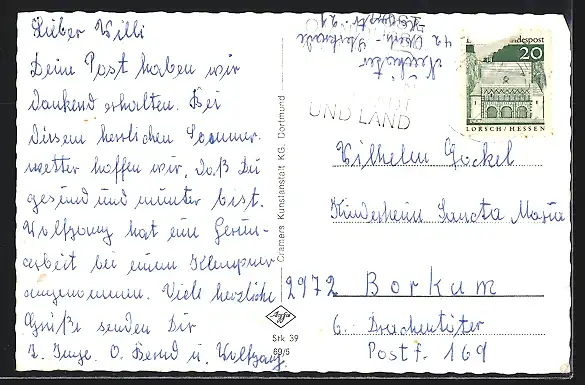 Lieber Willi
Deine Post haben wir
dankend erhalten. Bei
diesem herrlichen Sommer-
wetter hoffen wir, daß Du
gesund und munter bist.
Wolfgang hat eine Ferien-
arbeit bei einem Klempner
angenommen. Viele herzliche
Grüße senden Dir
T. Inge. O. Bernd u. Wolfgang.
Cramers Kunstanstalt KG. Dortmund
Agfa
Stk 39
69/5
42
UND LAND
Deutsche Bundespost
20
LORSCH/HESSEN
Wilhelm Göckel
Kinderheim Sancta Maria
2972 Borkum
Postf. 169